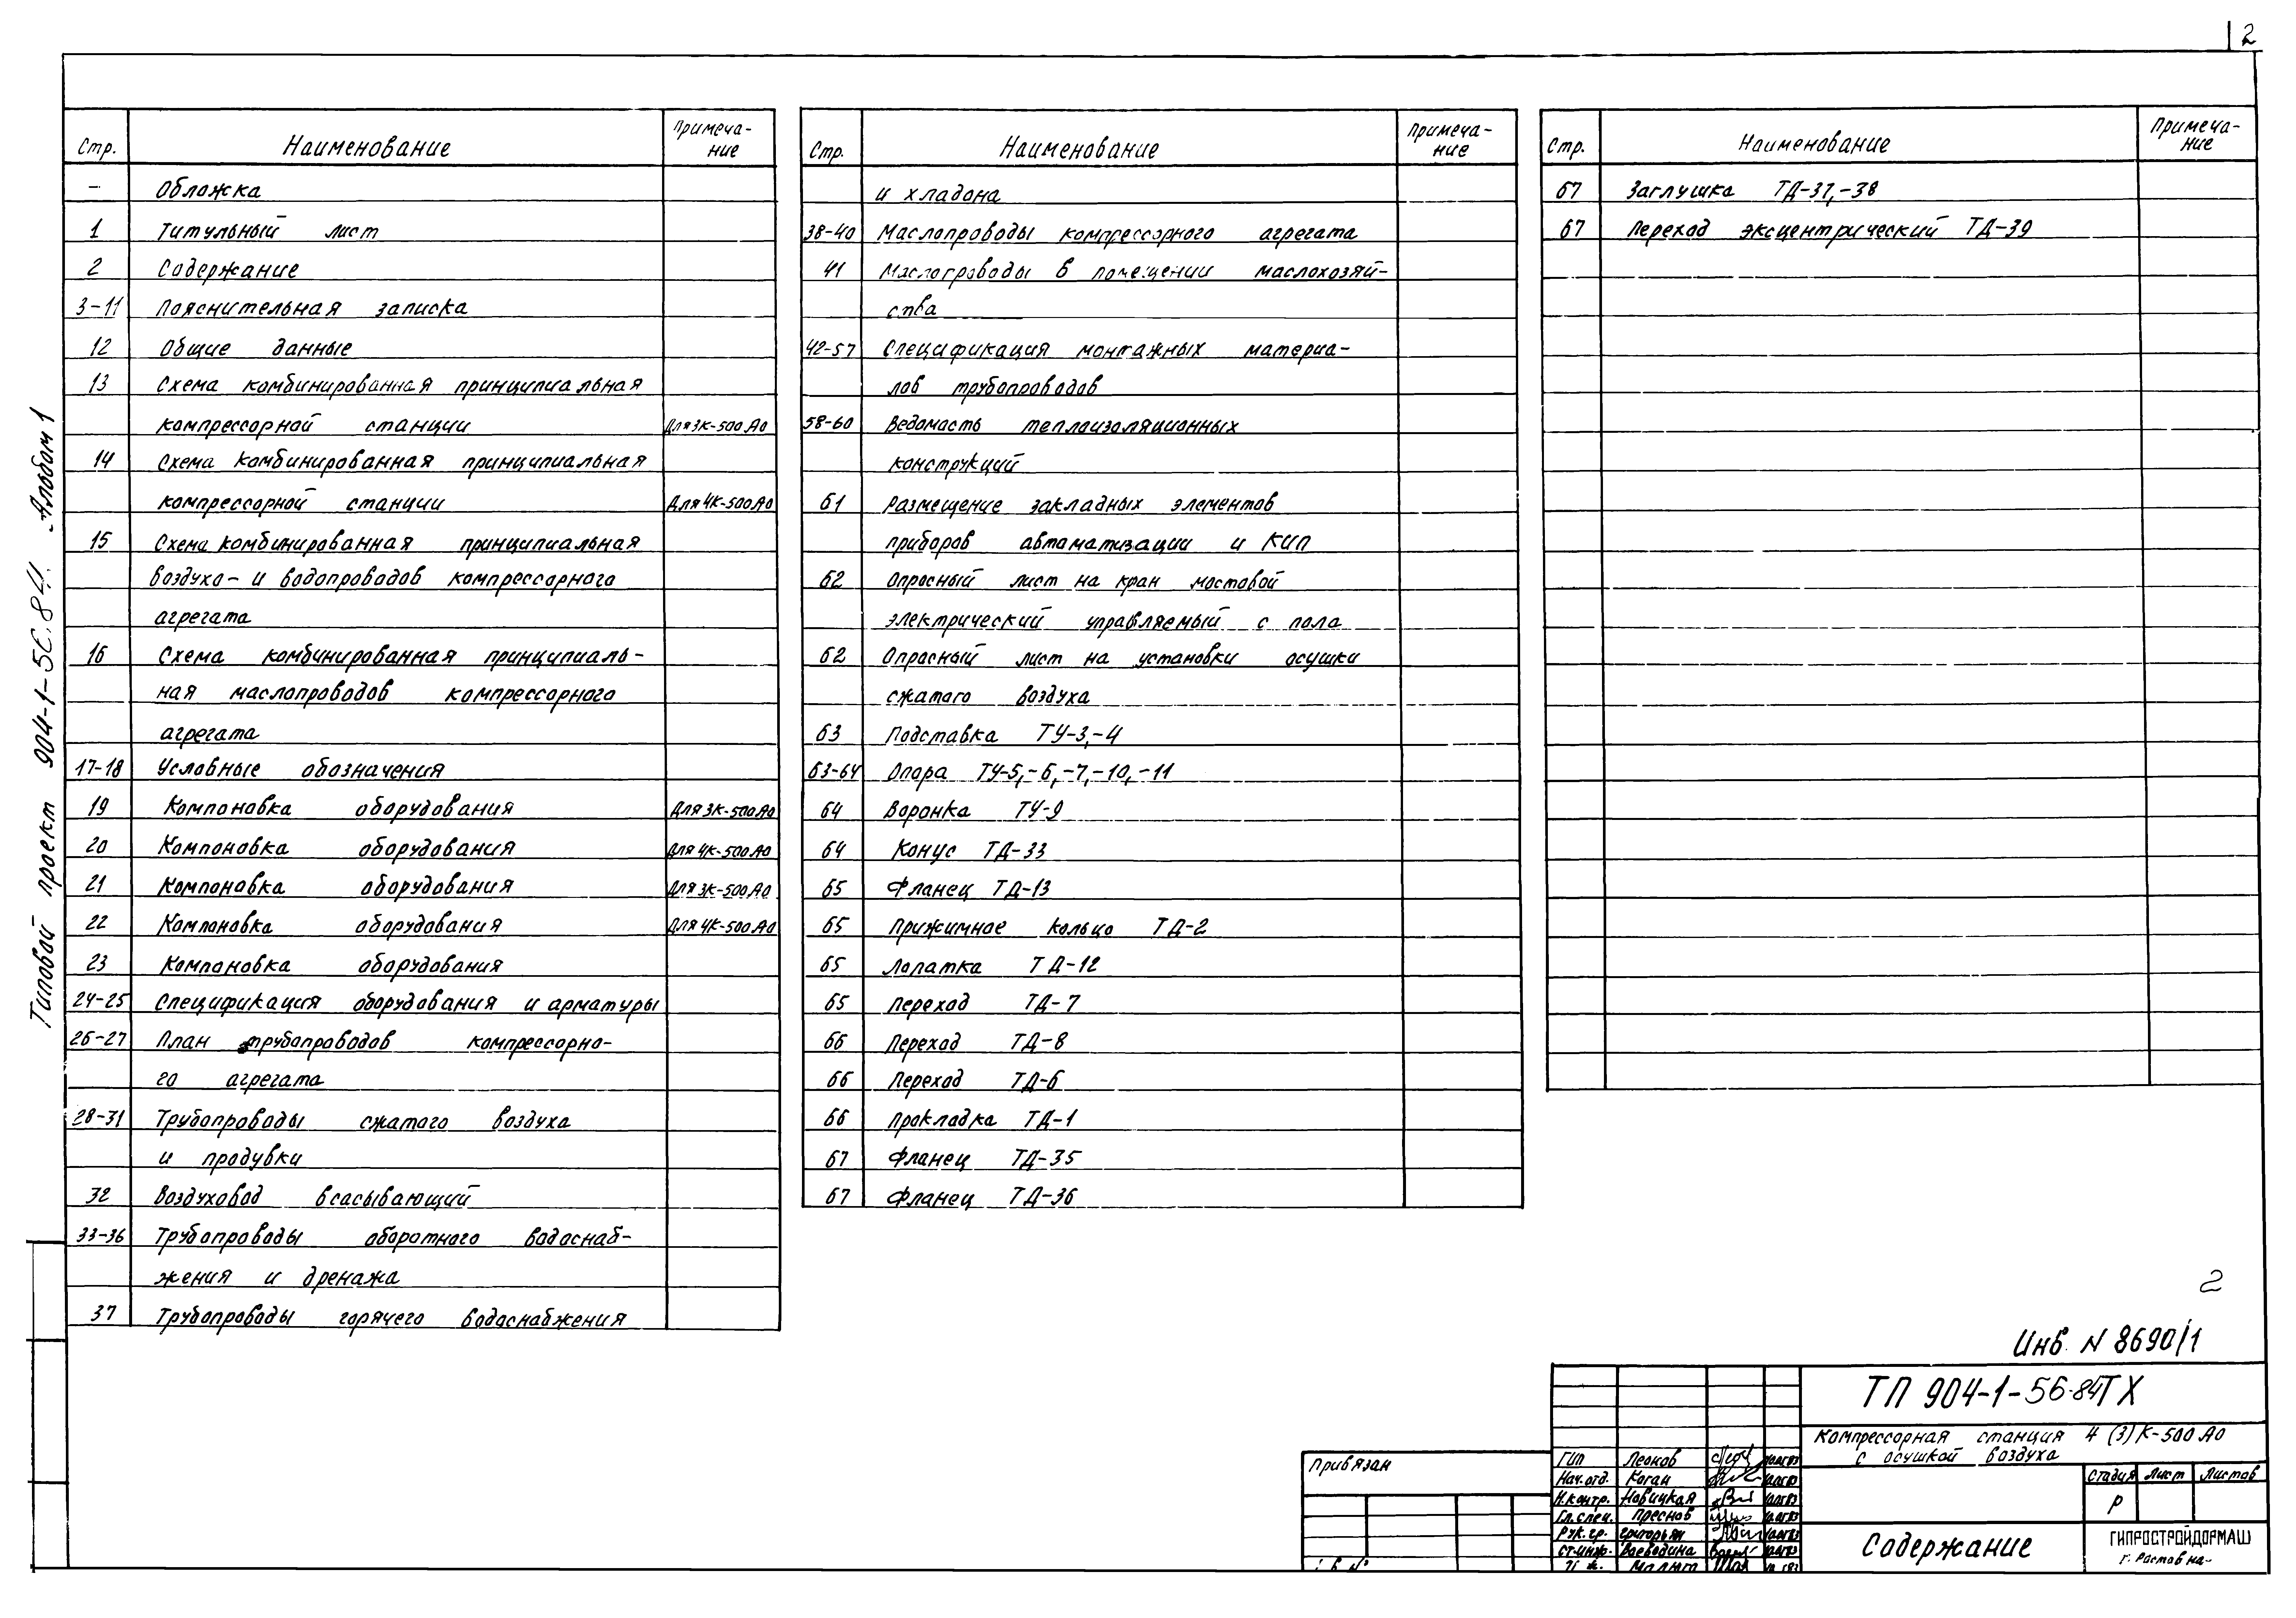 2
Стр. Наименование Примеча-
ние
– Обложка
1 Титульный лист
2 Содержание
3-11 Пояснительная записка
12 Общие данные
13 Схема комбинированная принципиальная
компрессорной станции Для 3К-500 АО
14 Схема комбинированная принципиальная
компрессорной станции Для 4К-500 АО
15 Схема комбинированная принципиальная
воздухо- и водопроводов компрессорного
агрегата
16 Схема комбинированная принципиаль-
ная маслопроводов компрессорного
агрегата
17-18 Условные обозначения
19 Компоновка оборудования Для 3К-500 АО
20 Компоновка оборудования Для 4К-500 АО
21 Компоновка оборудования Для 3К-500 АО
22 Компоновка оборудования Для 4К-500 АО
23 Компоновка оборудования
24-25 Спецификация оборудования и арматуры
26-27 План трубопроводов компрессорно-
го агрегата
28-31 Трубопроводы сжатого воздуха
и продувки
32 Воздуховод всасывающий
33-36 Трубопроводы оборотного водоснаб-
жения и дренажа
37 Трубопроводы горячего водоснабжения
Стр. Наименование Примеча-
ние
и хладона
38-40 Маслопроводы компрессорного агрегата
41 Маслопроводы в помещении маслохозяй-
ства
42-57 Спецификация монтажных материа-
лов трубопроводов
58-60 Ведомость теплоизоляционных
конструкций
61 Размещение закладных элементов
приборов автоматизации и КИП
62 Опросный лист на кран мостовой
электрический управляемый с пола
62 Опросный лист на установки осушки
сжатого воздуха
63 Подставка ТУ-3,-4
63-64 Опора ТУ-5,-6,-7,-10,-11
64 Воронка ТУ-9
64 Конус ТД-33
65 Фланец ТД-13
65 Прижимное кольцо ТД-2
65 Лопатка ТД-12
65 Переход ТД-7
66 Переход ТД-8
66 Переход ТД-6
66 Прокладка ТД-1
67 Фланец ТД-35
67 Фланец ТД-36
Стр. Наименование Примеча-
ние
67 Заглушка ТД-37,-38
67 Переход эксцентрический ТД-39
Типовой проект 904-1-56.84. Альбом 1
2
Инв. N 8690/1
ТП 904-1-56.84 ТХ
Компрессорная станция 4 (3) К-500 АО
с осушкой воздуха
Стадия Лист Листов
Р
Содержание
ГИПРОСТРОЙДОРМАШ
г. Ростов на-
Привязан
ГИП Леонов
Нач. отд. Коган
Н. контр. Новицкая
Гл. спец. Преснов
Рук. гр. Григорьян
Ст. инж. Воеводина